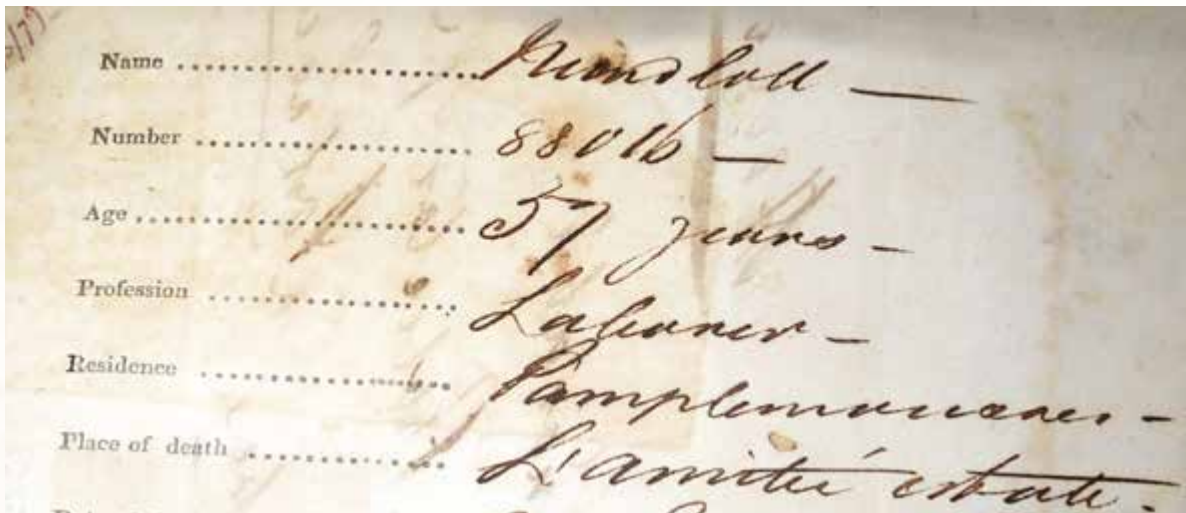 Name .......................... Nundloll —
Number .......................... 88016 —
Age .......................... 57 years –
Profession .................... Labourer –
Residence .................... Pamplemousses –
Place of death .................... L'amitié estate.